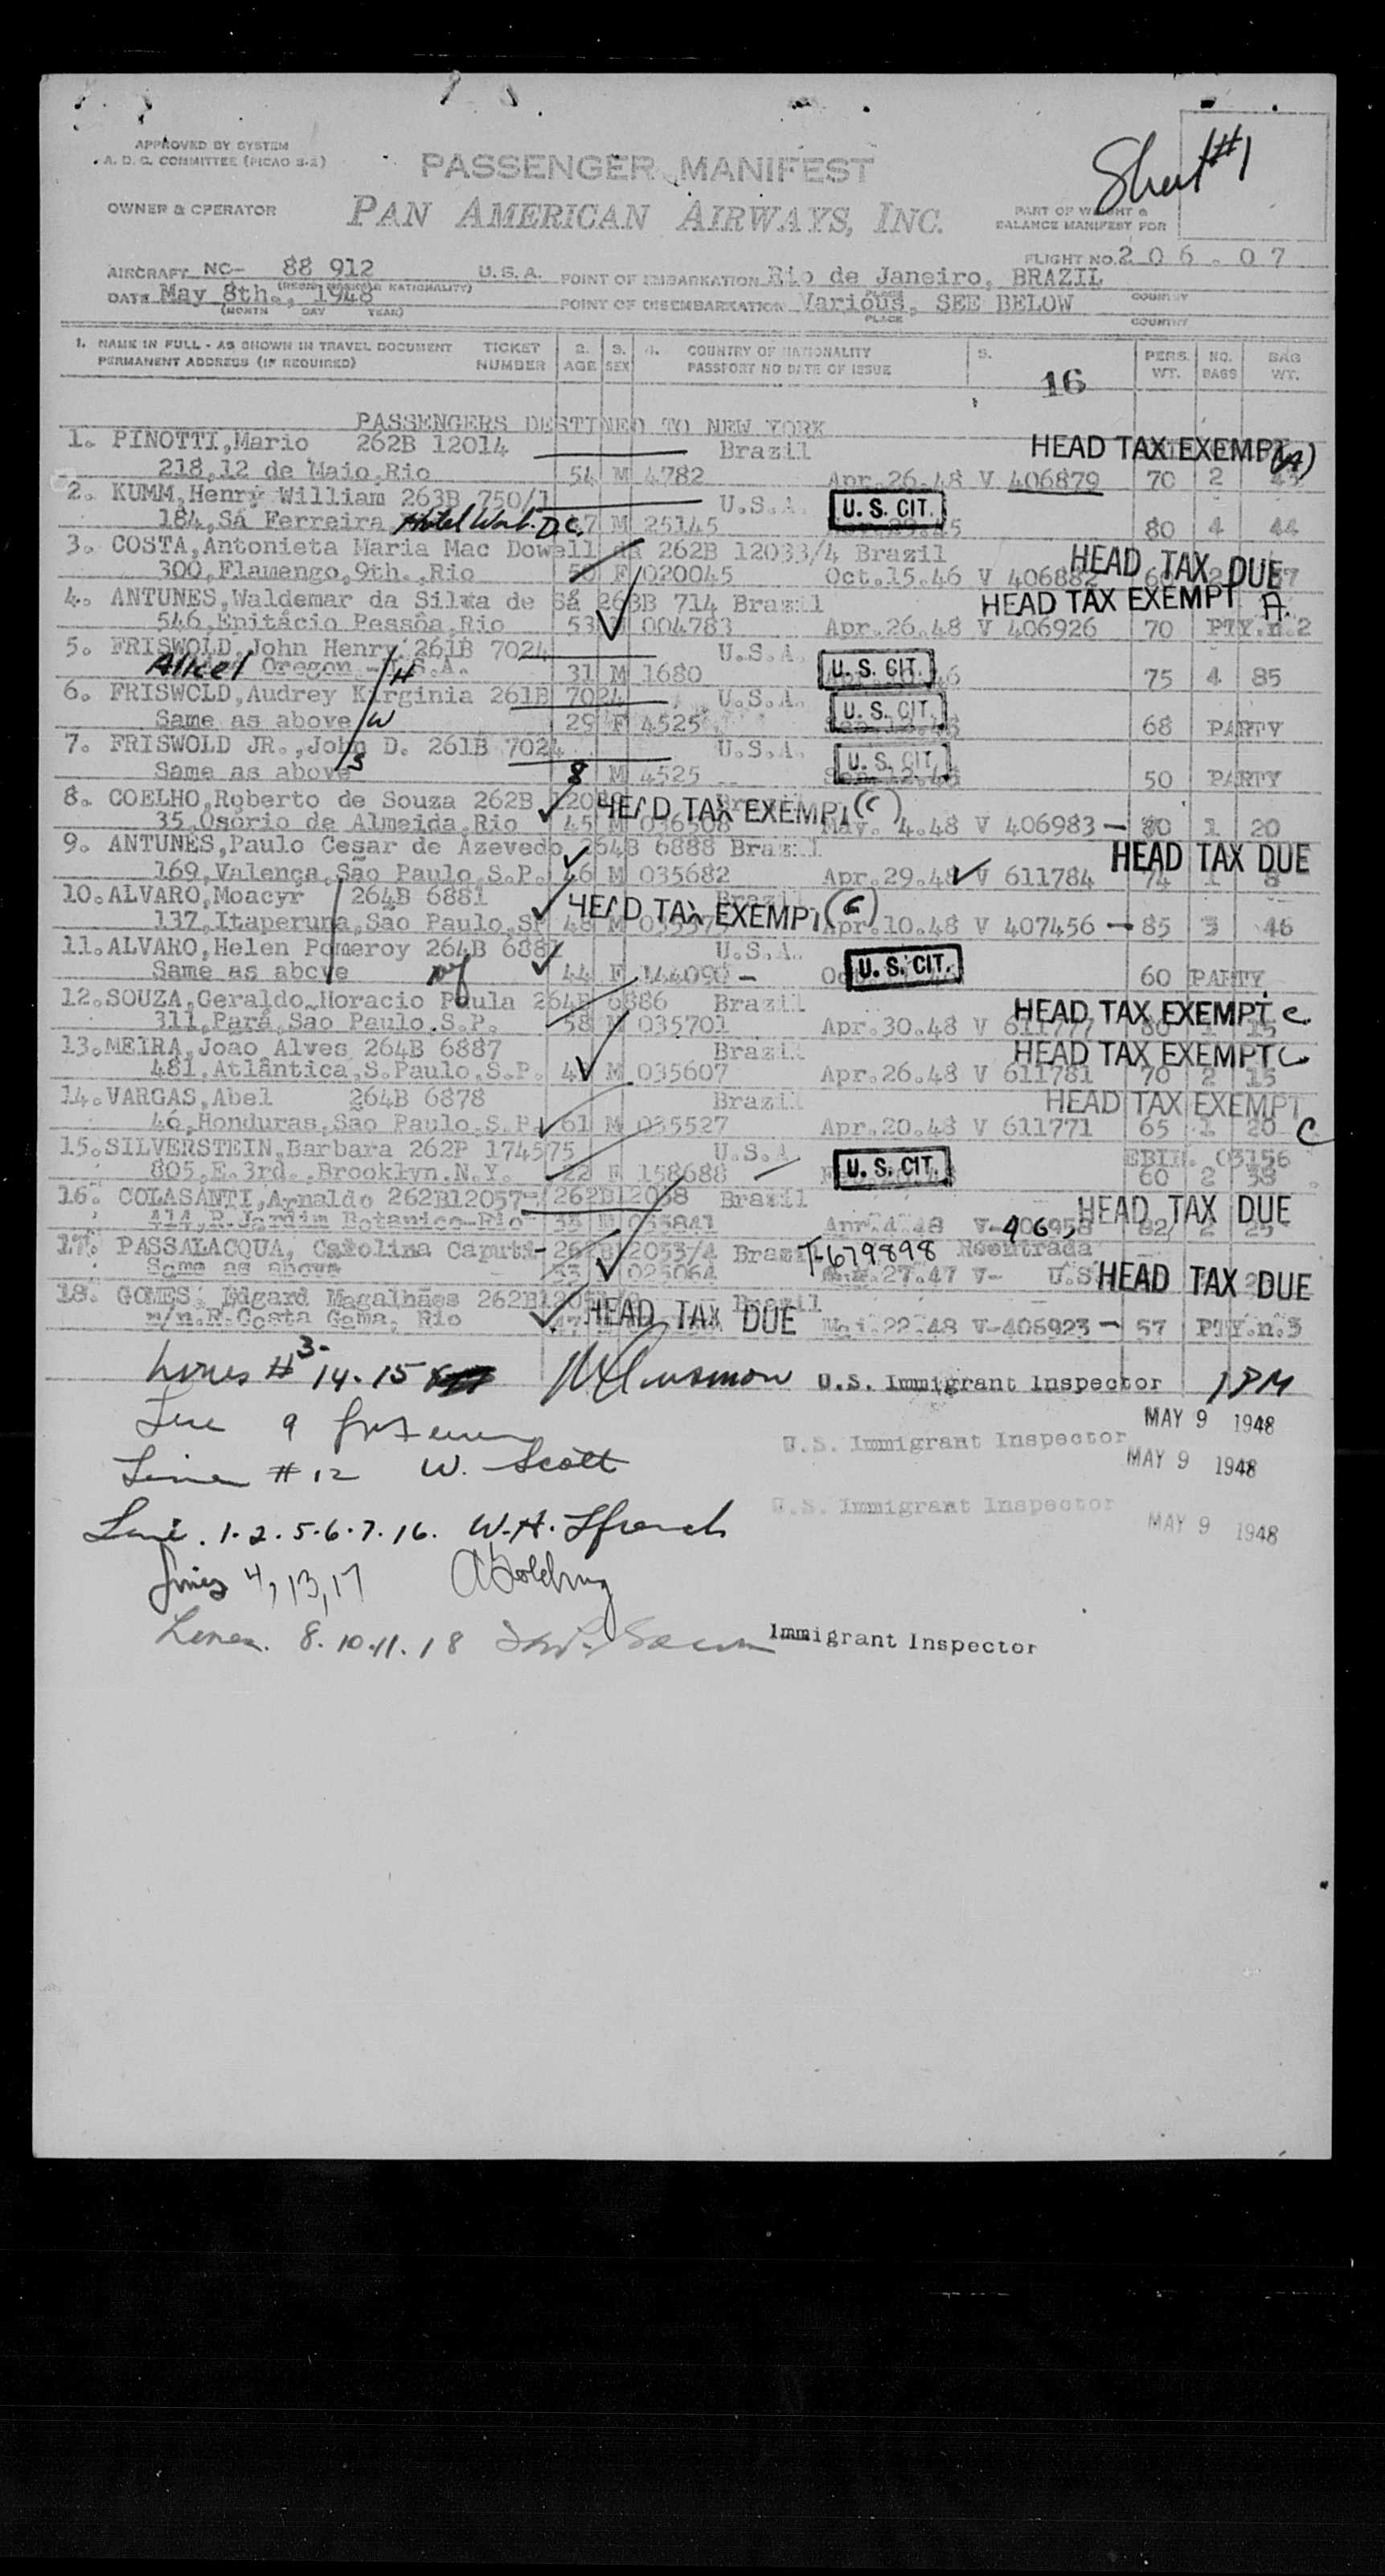 APPROVED BY SYSTEM
A. D. C. COMMITTEE (PICAO S-2)
PASSENGER MANIFEST
Sheet #1
OWNER & OPERATOR
PAN AMERICAN AIRWAYS, INC.
PART OF WEIGHT &
BALANCE MANIFEST FOR
FLIGHT NO. 206.07
AIRCRAFT NC- 88 912 U.S.A. POINT OF EMBARKATION Rio de Janeiro, BRAZIL
DATE May 8th., 1948 POINT OF DISEMBARKATION Various, SEE BELOW
(MONTH DAY YEAR) PLACE COUNTRY
1. NAME IN FULL - AS SHOWN IN TRAVEL DOCUMENT TICKET 2. 3. 4. COUNTRY OF NATIONALITY 5. PERS. NO. BAG
PERMANENT ADDRESS (IF REQUIRED) NUMBER AGE SEX PASSPORT NO DATE OF ISSUE 16 WT. BAGS WT.
PASSENGERS DESTINED TO NEW YORK
1. PINOTTI,Mario 262B 12014 Brazil HEAD TAX EXEMPT (A)
218,12 de Maio,Rio 54 M 4782 Apr.26.48 V 406879 70 2
2. KUMM,Henry William 263B 750/1 U.S.A. U. S. CIT.
184,Sá Ferreira Hotel Wash. D.C. 7 M 25145 80 4 44
3. COSTA,Antonieta Maria Mac Dowell da 262B 12033/4 Brazil HEAD TAX DUE
300,Flamengo,9th.,Rio 50 F 020045 Oct.15.46 V 406882
4. ANTUNES,Waldemar da Silva de Sá 263B 714 Brazil HEAD TAX EXEMPT A.
546,Epitácio Pessôa,Rio 53 004783 Apr.26.48 V 406926 70 PTY.n.2
5. FRISWOLD,John Henry 261B 7024 U.S.A. U. S. CIT.
Oregon - U.S.A. H 31 M 1680 75 4 85
6. FRISWOLD,Audrey Kirginia 261B 7024 U.S.A. U. S. CIT.
Same as above W 29 F 4525 68 PARTY
7. FRISWOLD JR.,John D. 261B 7024 U.S.A. U. S. CIT.
Same as above S 8 M 4525 50 PARTY
8. COELHO,Roberto de Souza 262B HEAD TAX EXEMPT (C)
35,Osório de Almeida,Rio 45 M 036508 May. 4.48 V 406983 80 1 20
9. ANTUNES,Paulo Cesar de Azevedo 264B 6888 Brazil HEAD TAX DUE
169,Valença,São Paulo,S.P. 46 M 035682 Apr.29.48 V 611784 74 1 8
10. ALVARO,Moacyr 264B 6881 Brazil HEAD TAX EXEMPT (C)
137,Itaperuna,São Paulo,SP 48 M Apr.10.48 V 407456 85 3 46
11. ALVARO,Helen Pomeroy 264B 6881 U.S.A. U. S. CIT.
Same as above wf 44 F 60 PARTY
12. SOUZA,Geraldo Horacio Paula 264B 6886 Brazil HEAD TAX EXEMPT C
311,Pará,São Paulo.S.P. 58 M 035701 Apr.30.48 V 611777
13. MEIRA,Joao Alves 264B 6887 Brazil HEAD TAX EXEMPT C
481,Atlântica,S.Paulo,S.P. M 035607 Apr.26.48 V 611781 70 2 15
14. VARGAS,Abel 264B 6878 Brazil HEAD TAX EXEMPT C
46,Honduras,São Paulo,S.P. 61 M 035527 Apr.20.48 V 611771 65 1 20
15. SILVERSTEIN,Barbara 262P 174575 U.S.A U. S. CIT. 03156
805,E.3rd.,Brooklyn.N.Y. 22 F 158688 60 2 38
16. COLASANTI,Arnaldo 262B12057- 262B12058 Brazil HEAD TAX DUE
414,R.Jardim Botanico-Rio 35 M 035841 Apr.4.48 V-406,958 82 2 25
17. PASSALACQUA, Carolina Caputi- 262B 12053/4 Brazil T-679898 Reentrada
Same as above 53 025064 27.47 V- U.S HEAD TAX DUE
18. GOMES, Edgard Magalhães HEAD TAX DUE
R.Costa Gama, Rio 47 22.48 V-406923 - 57 PTY.n.3
Lines # 3-14-15 U.S. Immigrant Inspector 1 PM
MAY 9 1948
Line 9
U.S. Immigrant Inspector
Line # 12 W. Scott
MAY 9 1948
U.S. Immigrant Inspector
MAY 9 1948
Line. 1.2.5.6.7.16. W.H. Ffrench
Lines 4, 13, 17
Lines. 8.10.11.18 Immigrant Inspector